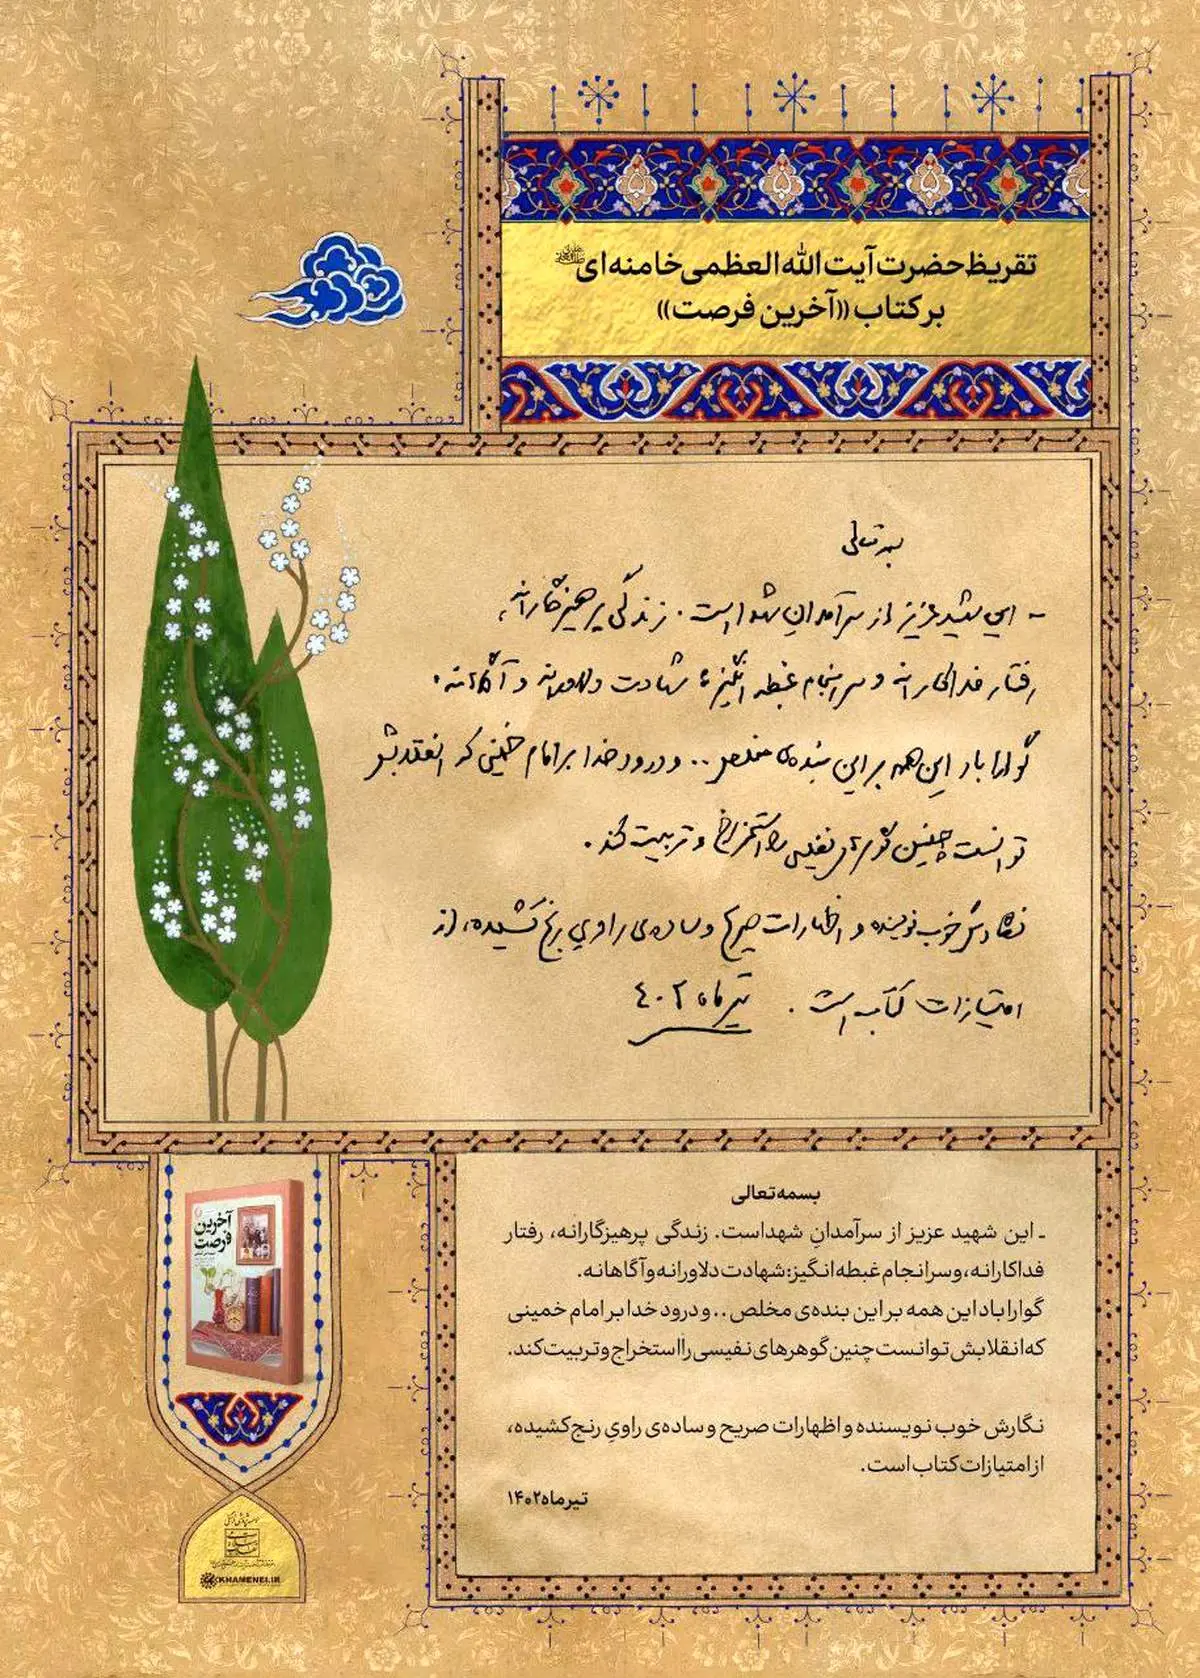 تقریظ حضرت آیت الله العظمی خامنه‌ای
بر کتاب «آخرین فرصت»
بسمه تعالی
- این شهید عزیز از سرآمدان شهدا است. زندگی پرهیزگارانه،
رفتار فداکارانه و سرانجام غبطه انگیز: شهادت دلاورانه و آگاهانه.
گوارا باد این همه بر این بنده‌ی مخلص .. و درود خدا بر امام خمینی که انقلابش
توانست چنین گوهرهای نفیسی را استخراج و تربیت کند.
نگارش خوب نویسنده و اظهارات صریح و ساده‌ی راوی رنج کشیده، از
امتیازات کتاب است. تیرماه ۴۰۲
بسمه تعالی
ـ این شهید عزیز از سرآمدانِ شهداست. زندگی پرهیزگارانه، رفتار
فداکارانه، و سرانجام غبطه انگیز: شهادت دلاورانه و آگاهانه.
گوارا باد این همه بر این بنده‌ی مخلص .. و درود خدا بر امام خمینی
که انقلابش توانست چنین گوهرهای نفیسی را استخراج و تربیت کند.
نگارش خوب نویسنده و اظهارات صریح و ساده‌ی راویِ رنج کشیده،
از امتیازات کتاب است.
تیرماه ۱۴۰۲
آخرین
فرصت
KHAMENEI.IR